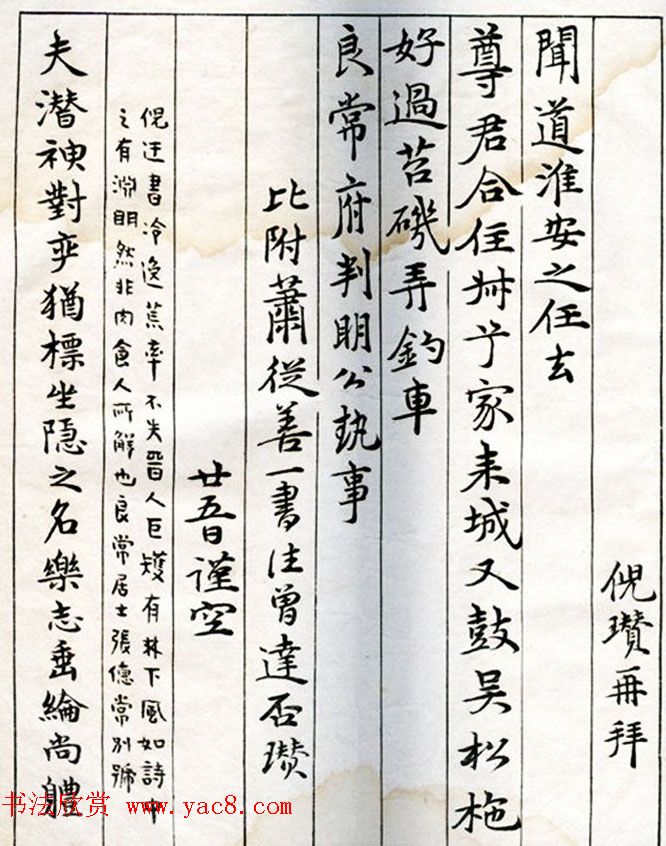 倪瓚再拜
聞道淮安之任去
尊君合住家來城又鼓吴松柂
好過苕磯弄釣車
良常府判明公執事
比附蕭從善一書往曾達否瓚
廿五日謹空
倪迂書冷逸荒率不失晉人巨矱有林下風如詩中
之有淵明然非肉食人所解也良常居士張德常別號
夫潛神對弈猶標坐隱之名樂志垂綸尚體
书法欣赏 www.yac8.com